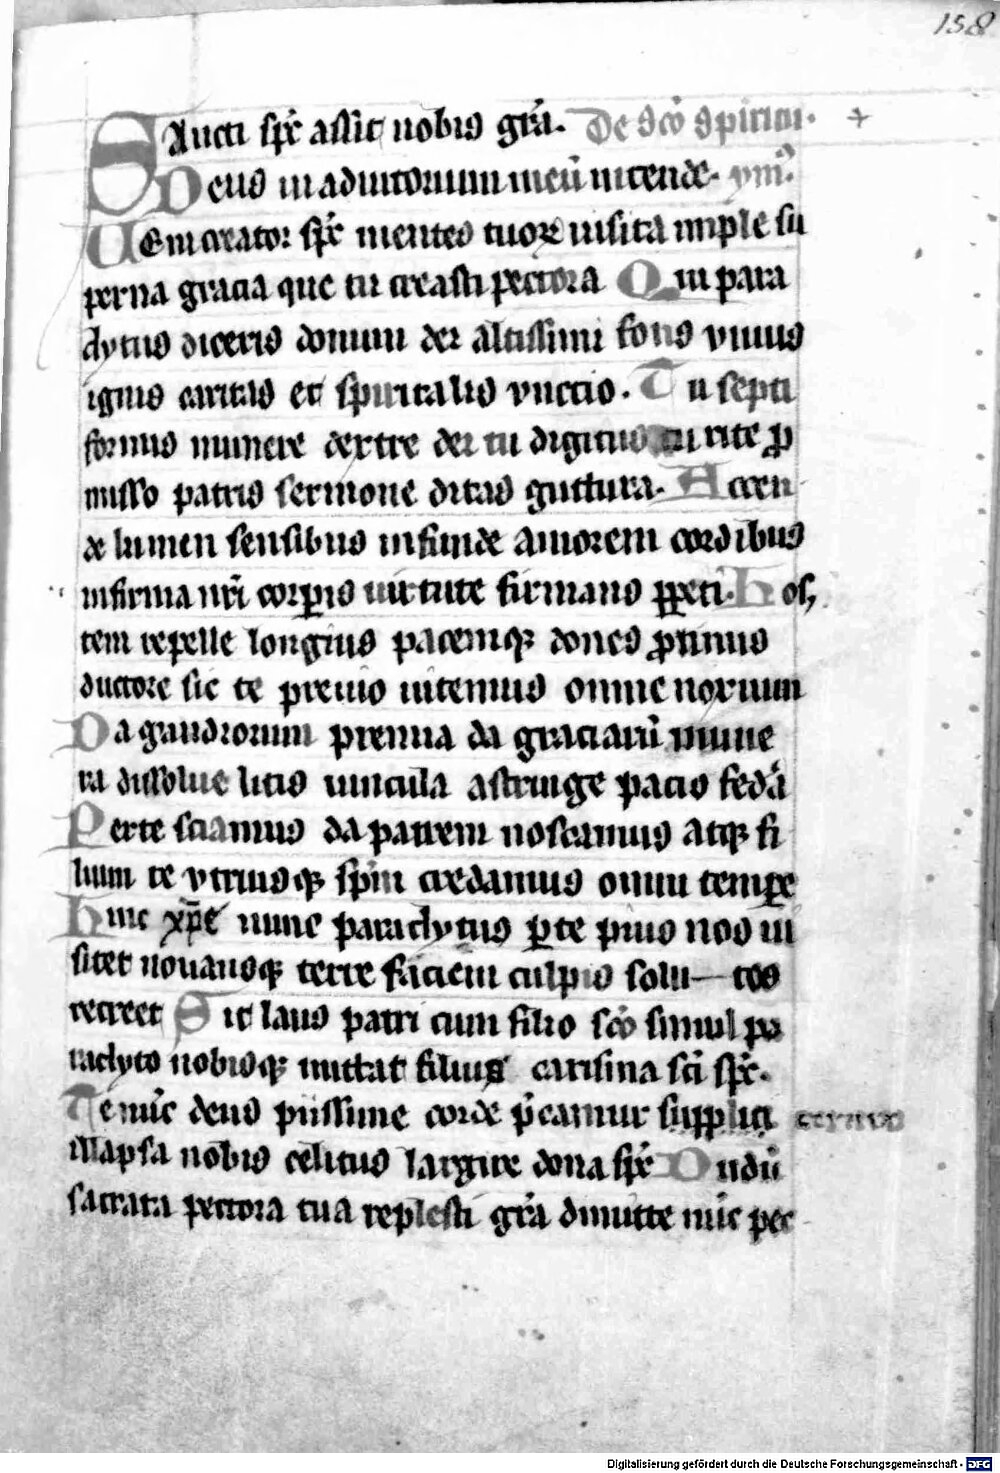 158
Sancti spc̄ assit nobis gr̄a. De sc̄o spiritu. +
Deus in adiutorium meū intende. ymꝰ
Veni creator spc̄ mentes tuoꝝ visita imple su
perna gracia que tu creasti pectora Qui para
clytus diceris donum dei altissimi fons viuus
ignis caritas et spiritalis vnctio. Tu septi
formis munere dextre dei tu digitus tu rite ꝓ
misso patris sermone ditas guttura. Accen
de lumen sensibus infunde amorem cordibus
infirma nr̄i corꝑis uirtute firmans ꝑpeti. Hos,
tem repelle longius pacemqꝫ dones ꝓtinus
ductore sic te preuio uitemus omne noxium
Da gaudiorum premia da graciarū mune
ra dissolue litis uincula astringe pacis fedā
Per te sciamus da patrem noscamus atqꝫ fi
lium te vtriusqꝫ spm̄ credamus omni tempe
Hinc xp̄e nunc paraclytus ꝑ te pius nos ui
sitet nouansqꝫ terre faciem culpis solu—tos
recreet Sit laus patri cum filio sc̄o simul pa
raclyto nobisqꝫ mittat filius carisma sc̄i spc̄.
Te nūc deus piissime corde p̄camur supplici
illapsa nobis celitus largire dona spc̄ Dudū
sacrata pectora tua replesti gr̄a dimitte nūc pec